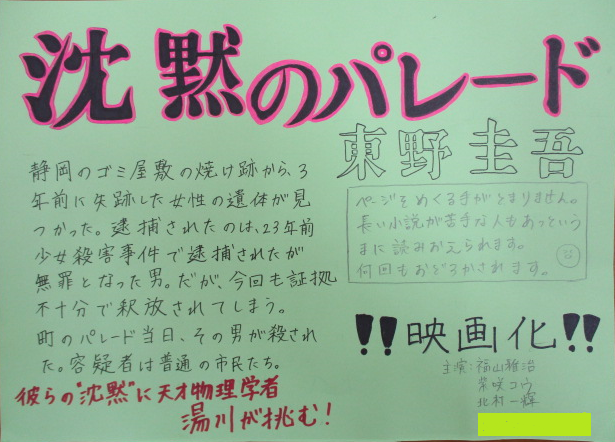 沈黙のパレード
東野圭吾
静岡のゴミ屋敷の焼け跡から、3
年前に失踪した女性の遺体が見
つかった。逮捕されたのは、23年前
少女殺害事件で逮捕されたが
無罪となった男。だが、今回も証拠
不十分で釈放されてしまう。
町のパレード当日、その男が殺され
た。容疑者は普通の市民たち。
彼らの"沈黙"に天才物理学者
湯川が挑む!
ページをめくる手がとまりません。
長い小説が苦手な人もあっという
まに読みおえられます。
何回もおどろかされます。
!!映画化!!
主演:福山雅治
柴咲コウ
北村一輝